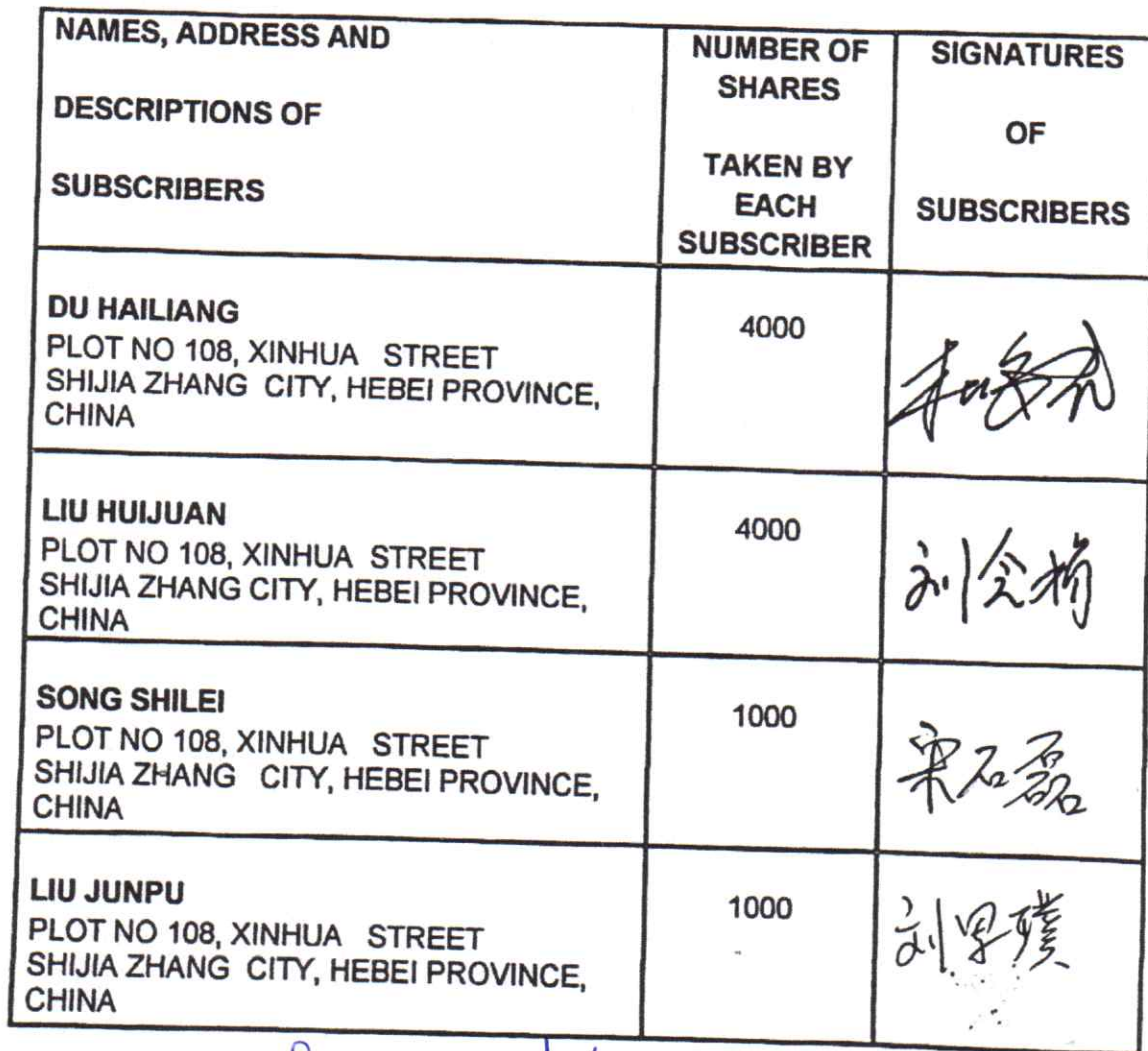 NAMES, ADDRESS AND
DESCRIPTIONS OF
SUBSCRIBERS
NUMBER OF
SHARES
TAKEN BY
EACH
SUBSCRIBER
SIGNATURES
OF
SUBSCRIBERS
DU HAILIANG
PLOT NO 108, XINHUA STREET
SHIJIA ZHANG CITY, HEBEI PROVINCE,
CHINA
4000
LIU HUIJUAN
PLOT NO 108, XINHUA STREET
SHIJIA ZHANG CITY, HEBEI PROVINCE,
CHINA
4000
SONG SHILEI
PLOT NO 108, XINHUA STREET
SHIJIA ZHANG CITY, HEBEI PROVINCE,
CHINA
1000
宋石磊
LIU JUNPU
PLOT NO 108, XINHUA STREET
SHIJIA ZHANG CITY, HEBEI PROVINCE,
CHINA
1000